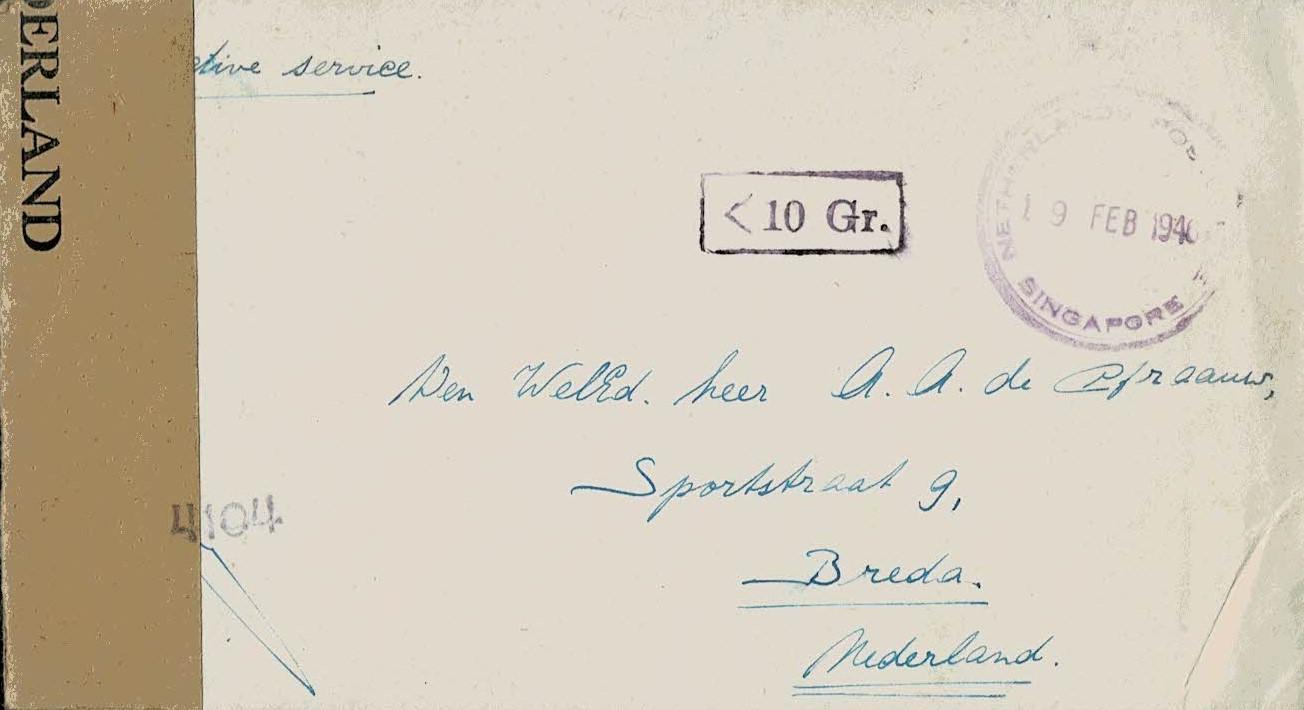 ERLAND
tive service.
< 10 Gr.
NETHERLANDS
19 FEB 1946
SINGAPORE
Den WelEd. heer A. A. de
Sportstraat 9,
Breda.
Nederland.
4104